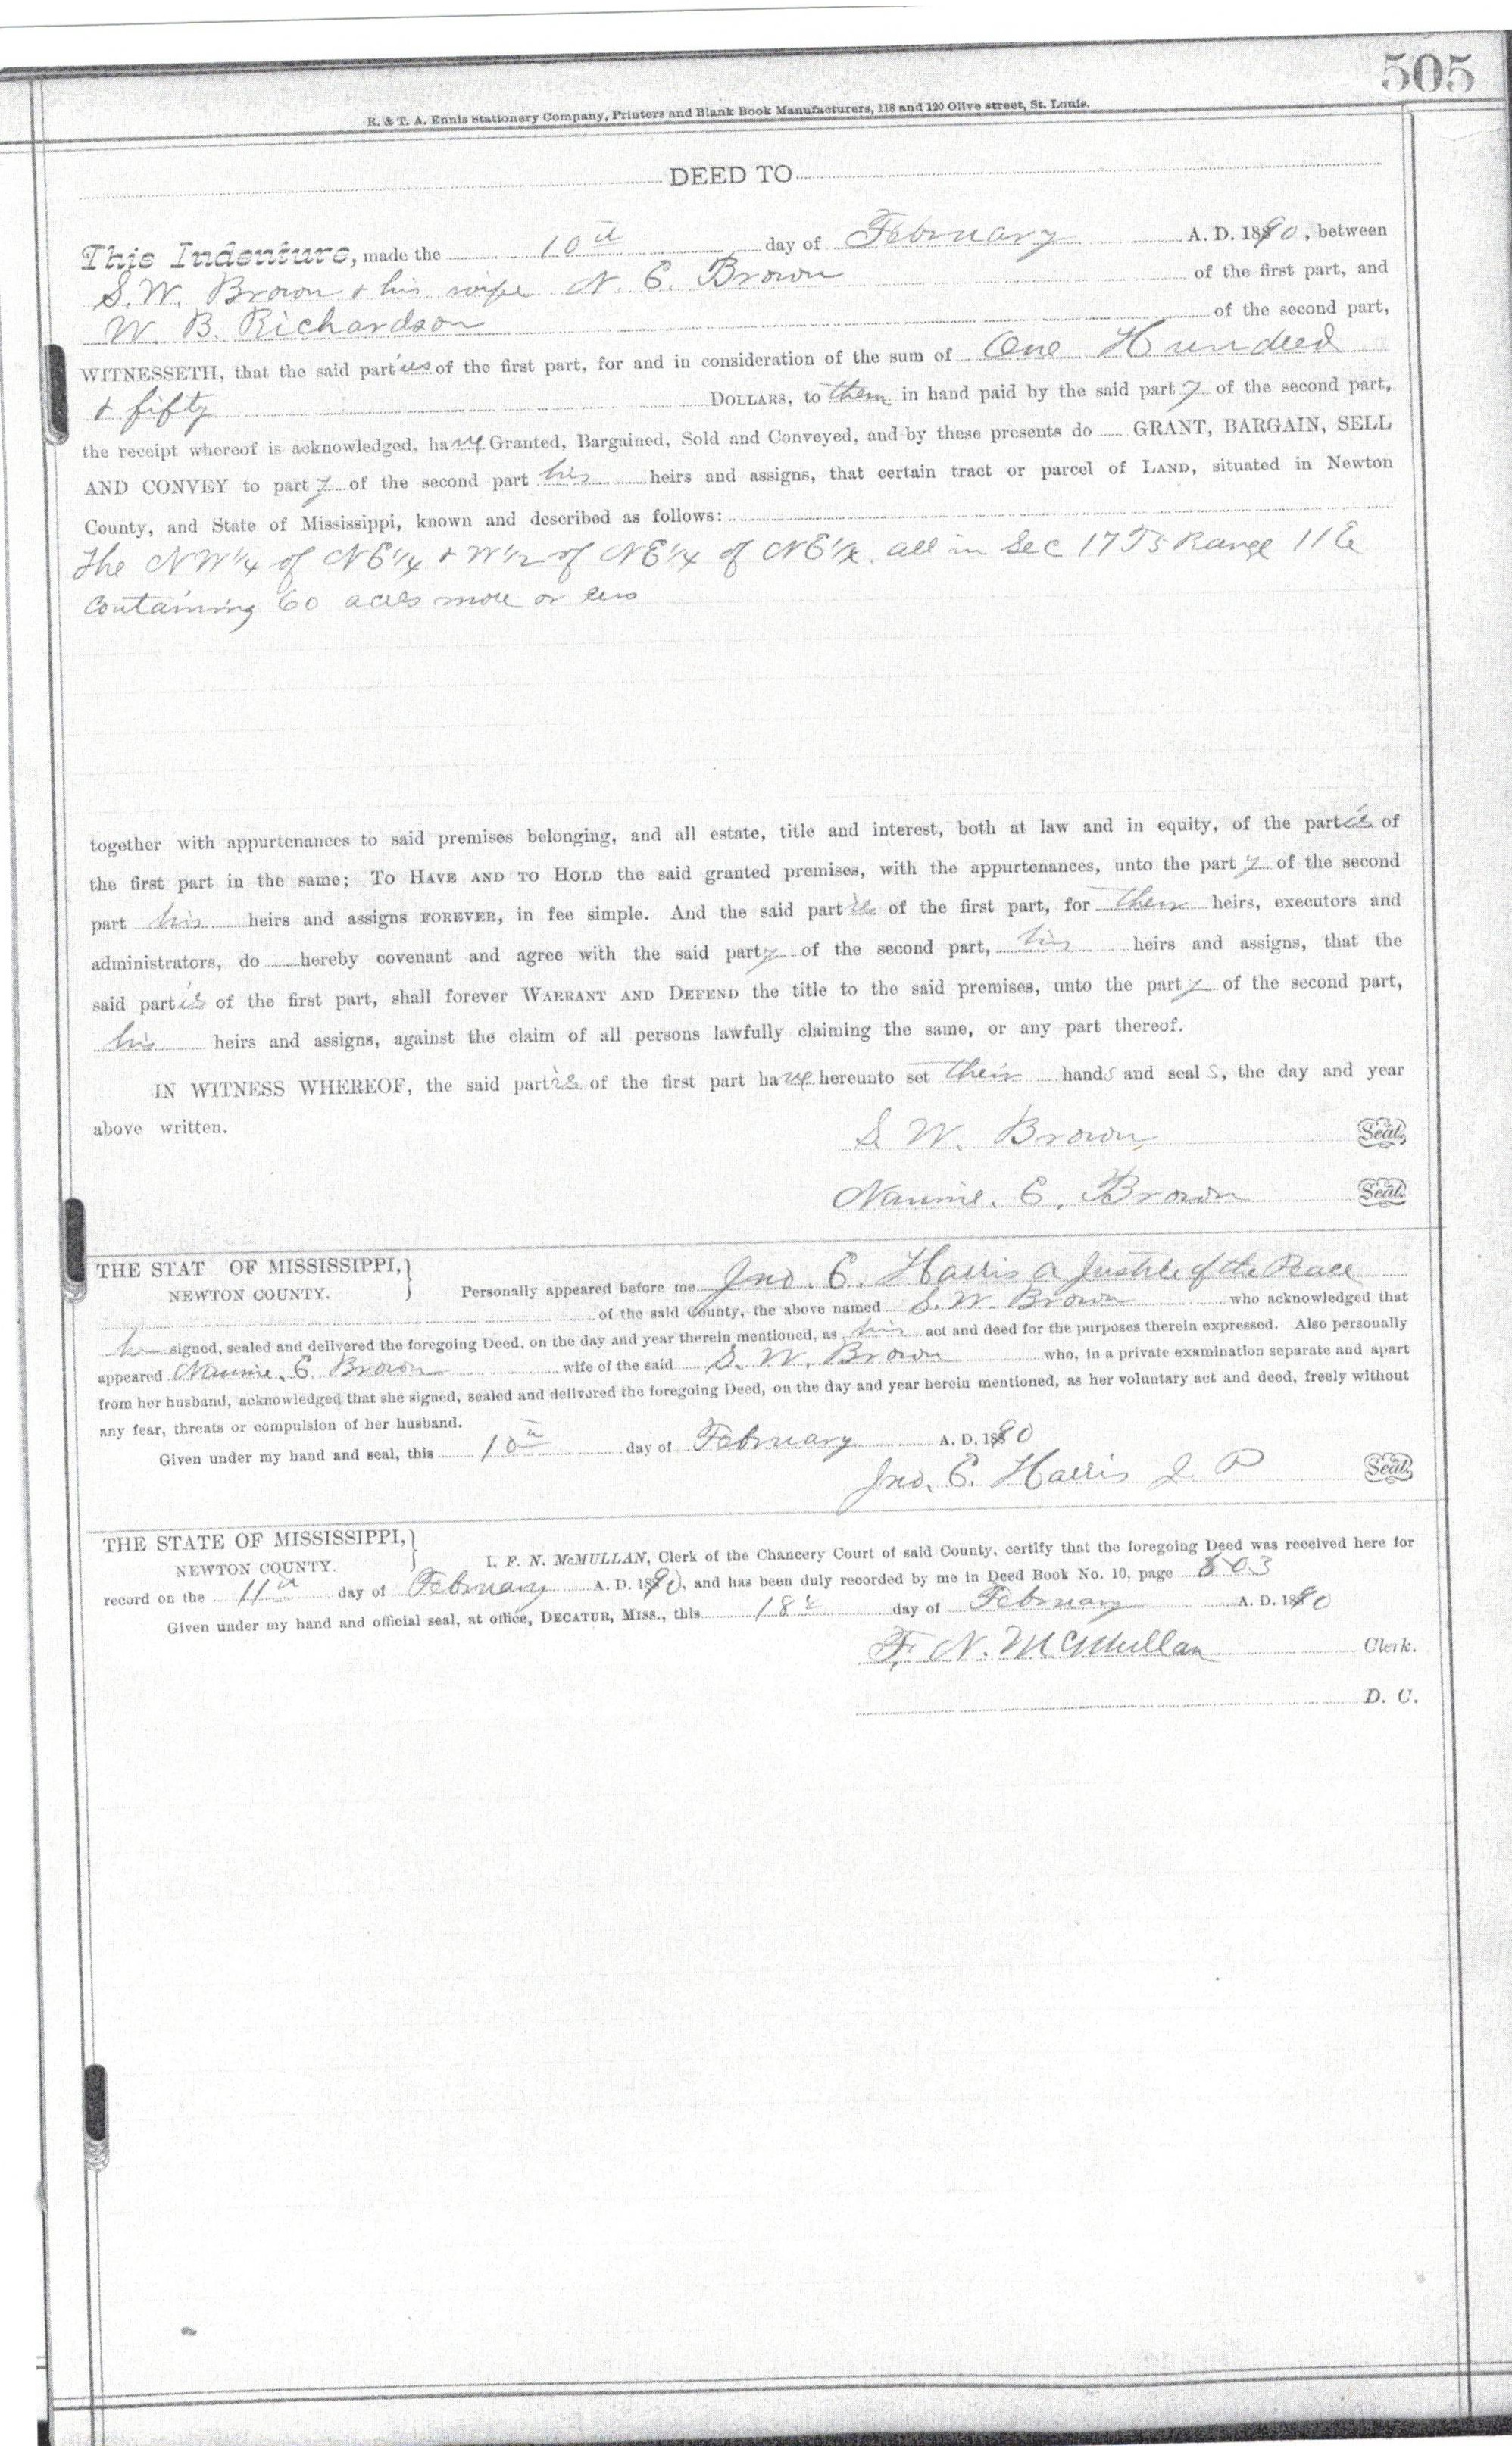 505
R. & T. A. Ennis Stationery Company, Printers and Blank Book Manufacturers, 118 and 120 Olive street, St. Louis.
DEED TO
This Indenture, made the 10th day of February A. D. 1890, between
S. W. Brown & his wife N. E. Brown of the first part, and
W. B. Richardson of the second part,
WITNESSETH, that the said parties of the first part, for and in consideration of the sum of One Hundred
& fifty DOLLARS, to them in hand paid by the said party of the second part,
the receipt whereof is acknowledged, have Granted, Bargained, Sold and Conveyed, and by these presents do GRANT, BARGAIN, SELL
AND CONVEY to party of the second part his heirs and assigns, that certain tract or parcel of LAND, situated in Newton
County, and State of Mississippi, known and described as follows:
The NW 1/4 of NE 1/4 & W 1/2 of NE 1/4 of NE 1/4. all in Sec 17 T5 Range 11 E
Containing 60 acres more or less
together with appurtenances to said premises belonging, and all estate, title and interest, both at law and in equity, of the parties of
the first part in the same; TO HAVE AND TO HOLD the said granted premises, with the appurtenances, unto the party of the second
part his heirs and assigns FOREVER, in fee simple. And the said parties of the first part, for their heirs, executors and
administrators, do hereby covenant and agree with the said party of the second part, his heirs and assigns, that the
said parties of the first part, shall forever WARRANT AND DEFEND the title to the said premises, unto the party of the second part,
his heirs and assigns, against the claim of all persons lawfully claiming the same, or any part thereof.
IN WITNESS WHEREOF, the said parties of the first part have hereunto set their hands and seals, the day and year
above written.
S. W. Brown Seal.
Nannie. E. Brown Seal.
THE STAT OF MISSISSIPPI,
NEWTON COUNTY.
Personally appeared before me Jno. E. Harris a Justice of the Peace
of the said County, the above named S. W. Brown who acknowledged that
he signed, sealed and delivered the foregoing Deed, on the day and year therein mentioned, as his act and deed for the purposes therein expressed. Also personally
appeared Nannie. E. Brown wife of the said S. W. Brown who, in a private examination separate and apart
from her husband, acknowledged that she signed, sealed and delivered the foregoing Deed, on the day and year herein mentioned, as her voluntary act and deed, freely without
any fear, threats or compulsion of her husband.
Given under my hand and seal, this 10th day of February A. D. 1890
Jno. E. Harris J. P Seal.
THE STATE OF MISSISSIPPI,
NEWTON COUNTY.
I, F. N. McMULLAN, Clerk of the Chancery Court of said County, certify that the foregoing Deed was received here for
record on the 11th day of February A. D. 1890, and has been duly recorded by me in Deed Book No. 10, page 503
Given under my hand and official seal, at office, DECATUR, MISS., this 18th day of February A. D. 1890
F. N. McMullan Clerk.
D. C.